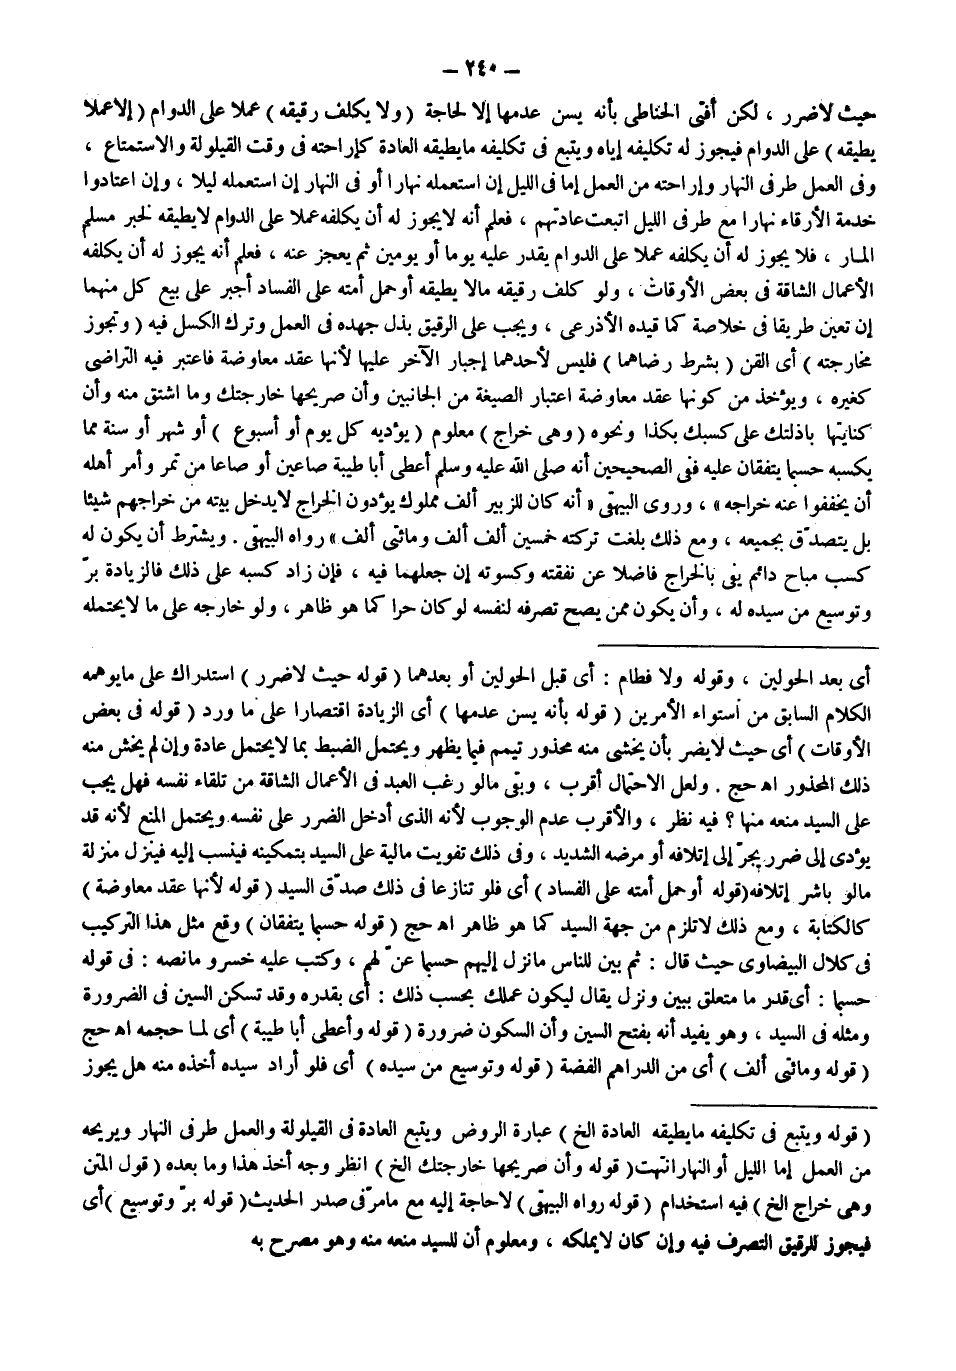 – ٢٤٠ –
حيث لاضرر ، لكن أفتى الحناطى بأنه يسن عدمها إلا لحاجة ( ولا يكلف رقيقه ) عملا على الدوام ( إلا عملا
يطيقه ) على الدوام فيجوز له تكليفه إياه ويتبع فى تكليفه مايطيقه العادة كإراحته فى وقت القيلولة والاستمتاع ،
وفى العمل طرفى النهار وإراحته من العمل إما فى الليل إن استعمله نهارا أو فى النهار إن استعمله ليلا ، وإن اعتادوا
خدمة الأرقاء نهارا مع طرفى الليل اتبعت عادتهم ، فعلم أنه لايجوز له أن يكلفه عملا على الدوام لايطيقه لخبر مسلم
المار ، فلا يجوز له أن يكلفه عملا على الدوام يقدر عليه يوما أو يومين ثم يعجز عنه ، فعلم أنه يجوز له أن يكلفه
الأعمال الشاقة فى بعض الأوقات ، ولو كلف رقيقه مالا يطيقه أو حمل أمته على الفساد أجبر على بيع كل منهما
إن تعين طريقا فى خلاصة كما قيده الأذرعى ، ويجب على الرقيق بذل جهده فى العمل وترك الكسل فيه ( وتجوز
مخارجته ) أى القن ( بشرط رضاهما ) فليس لأحدهما إجبار الآخر عليها لأنها عقد معاوضة فاعتبر فيه التراضى
كغيره ، ويؤخذ من كونها عقد معاوضة اعتبار الصيغة من الجانبين وأن صريحها خارجتك وما اشتق منه وأن
كنايتها باذلتك على كسبك بكذا ونحوه ( وهى خراج ) معلوم ( يؤديه كل يوم أو أسبوع ) أو شهر أو سنة مما
يكسبه حسبما يتفقان عليه ففى الصحيحين أنه صلى الله عليه وسلم أعطى أبا طيبة صاعين أو صاعا من تمر وأمر أهله
أن يخففوا عنه خراجه» ، وروى البيهقى « أنه كان للزبير ألف مملوك يؤدون الخراج لايدخل بيته من خراجهم شيئا
بل يتصدّق بجميعه ، ومع ذلك بلغت تركته خمسين ألف ألف ومائتى ألف» رواه البيهقى . ويشترط أن يكون له
كسب مباح دائم يفى بالخراج فاضلا عن نفقته وكسوته إن جعلهما فيه ، فإن زاد كسبه على ذلك فالزيادة برّ
وتوسيع من سيده له ، وأن يكون ممن يصح تصرفه لنفسه لو كان حرا كما هو ظاهر ، ولو خارجه على ما لايحتمله
أى بعد الحولين ، وقوله ولا فطام : أى قبل الحولين أو بعدهما ( قوله حيث لا ضرر ) استدراك على مايوهمه
الكلام السابق من استواء الأمرين ( قوله بأنه يسن عدمها ) أى الزيادة اقتصارا على ما ورد ( قوله فى بعض
الأوقات ) أى حيث لايضر بأن يخشى منه محذور تيمم فيما يظهر ويحتمل الضبط بما لايحتمل عادة وإن لم يخش منه
ذلك المحذور اه حج . ولعل الاحتمال أقرب ، وبقى مالو رغب العبد فى الأعمال الشاقة من تلقاء نفسه فهل يجب
على السيد منعه منها ؟ فيه نظر ، والأقرب عدم الوجوب لأنه الذى أدخل الضرر على نفسه ويحتمل المنع لأنه قد
يؤدى إلى ضرر يجرّ إلى إتلافه أو مرضه الشديد ، وفى ذلك تفويت مالية على السيد بتمكينه فينسب إليه فينزل منزلة
مالو باشر إتلافه(قوله أو حمل أمته على الفساد ) أى فلو تنازعا فى ذلك صدّق السيد ( قوله لأنها عقد معاوضة )
كالكتابة ، ومع ذلك لاتلزم من جهة السيد كما هو ظاهر اه حج ( قوله حسبما يتفقان ) وقع مثل هذا التركيب
فى كلال البيضاوى حيث قال : ثم بين للناس مانزل إليهم حسبما عنّ لهم ، وكتب عليه خسرو مانصه : فى قوله
حسبما : أى قدر ما متعلق ببين ونزل يقال ليكون عملك بحسب ذلك : أى بقدره وقد تسكن السين فى الضرورة
ومثله فى السيد ، وهو يفيد أنه بفتح السين وأن السكون ضرورة ( قوله وأعطى أبا طيبة ) أى لما حجمه اه حج
( قوله ومائتى ألف ) أى من الدراهم الفضة ( قوله وتوسيع من سيده ) أى فلو أراد سيده أخذه منه هل يجوز
( قوله ويتبع فى تكليفه مايطيقه العادة الخ ) عبارة الروض ويتبع العادة فى القيلولة والعمل طرفى النهار ويريحه
من العمل إما الليل أو النهار انتهت( قوله وأن صريحها خارجتك الخ ) انظر وجه أخذ هذا وما بعده ( قول المتن
وهى خراج الخ ) فيه استخدام ( قوله رواه البيهقى ) لاحاجة إليه مع مامرّ فى صدر الحديث( قوله برّ وتوسيع ) أى
فيجوز للرقيق التصرف فيه وإن كان لايملكه ، ومعلوم أن للسيد منعه منه وهو مصرح به